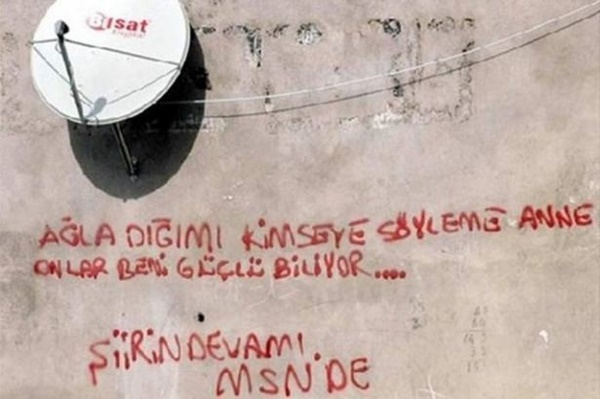 Bısat
AĞLA DIĞIMI KİMSEYE SÖYLEME ANNE
ONLAR BENİ GÜÇLÜ BİLİYOR....
ŞİİRİN DEVAMI
MSN'DE